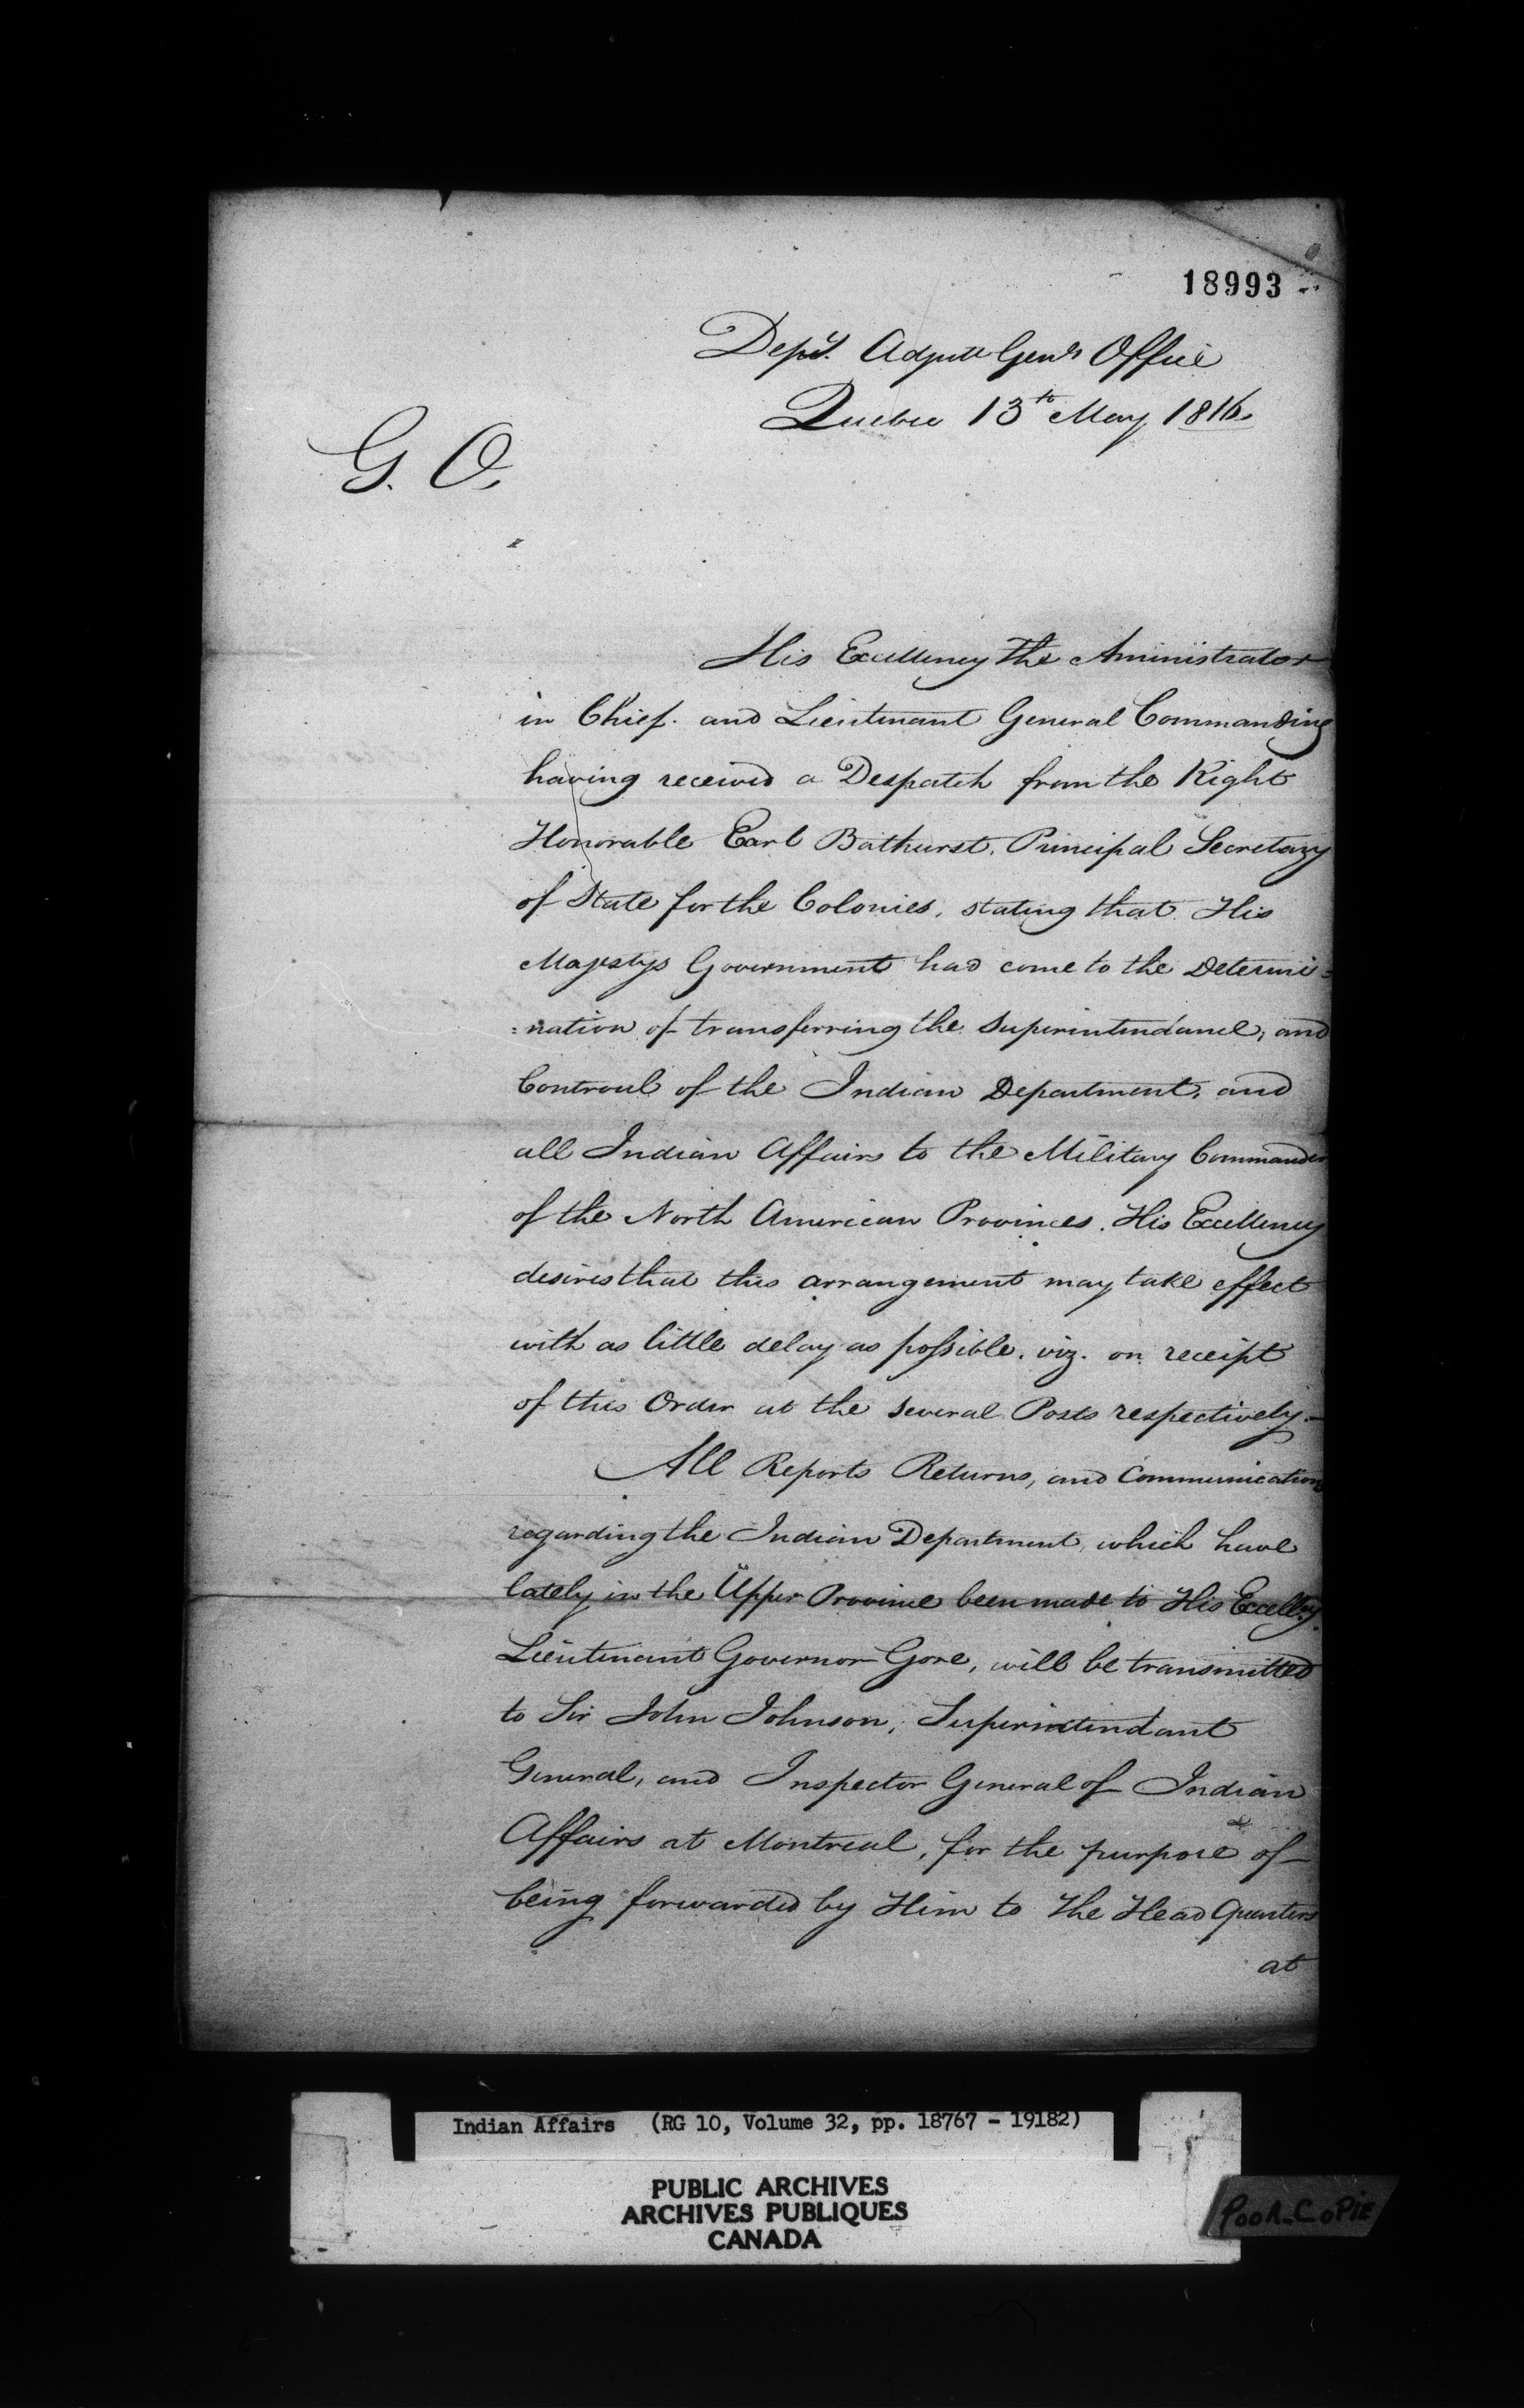 18993
Depy. Adjutt Genls Office
Quebec 13th May 1816.
G. O.
His Excellency The Aministrator
in Chief. and Lieutenant General Commanding
having received a Despatch from the Right
Honorable Earl Bathurst, Principal Secretary
of State for the Colonies, stating that His
Majestys Government had come to the Determi=
=nation of transferring the Superintendance, and
Controul of the Indian Department, and
all Indian Affairs to the Military Commander
of the North American Provinces. His Excellency
desires that this arrangement may take effect
with as little delay as possible. viz. on receipt
of this Order at the several Posts respectively.—
All Reports Returns, and Communications
regarding the Indian Department, which have
lately in the Upper Province been made to His Excelly.
Lieutenant Governor Gore, will be transmitted
to Sir John Johnson, Superintendant
General, and Inspector General of Indian
Affairs at Montreal, for the purpose of
being forwarded by Him to the Head Quarters
at
Indian Affairs (RG 10, Volume 32, pp. 18767 - 19182)
PUBLIC ARCHIVES
ARCHIVES PUBLIQUES
CANADA
POOR_COPIE